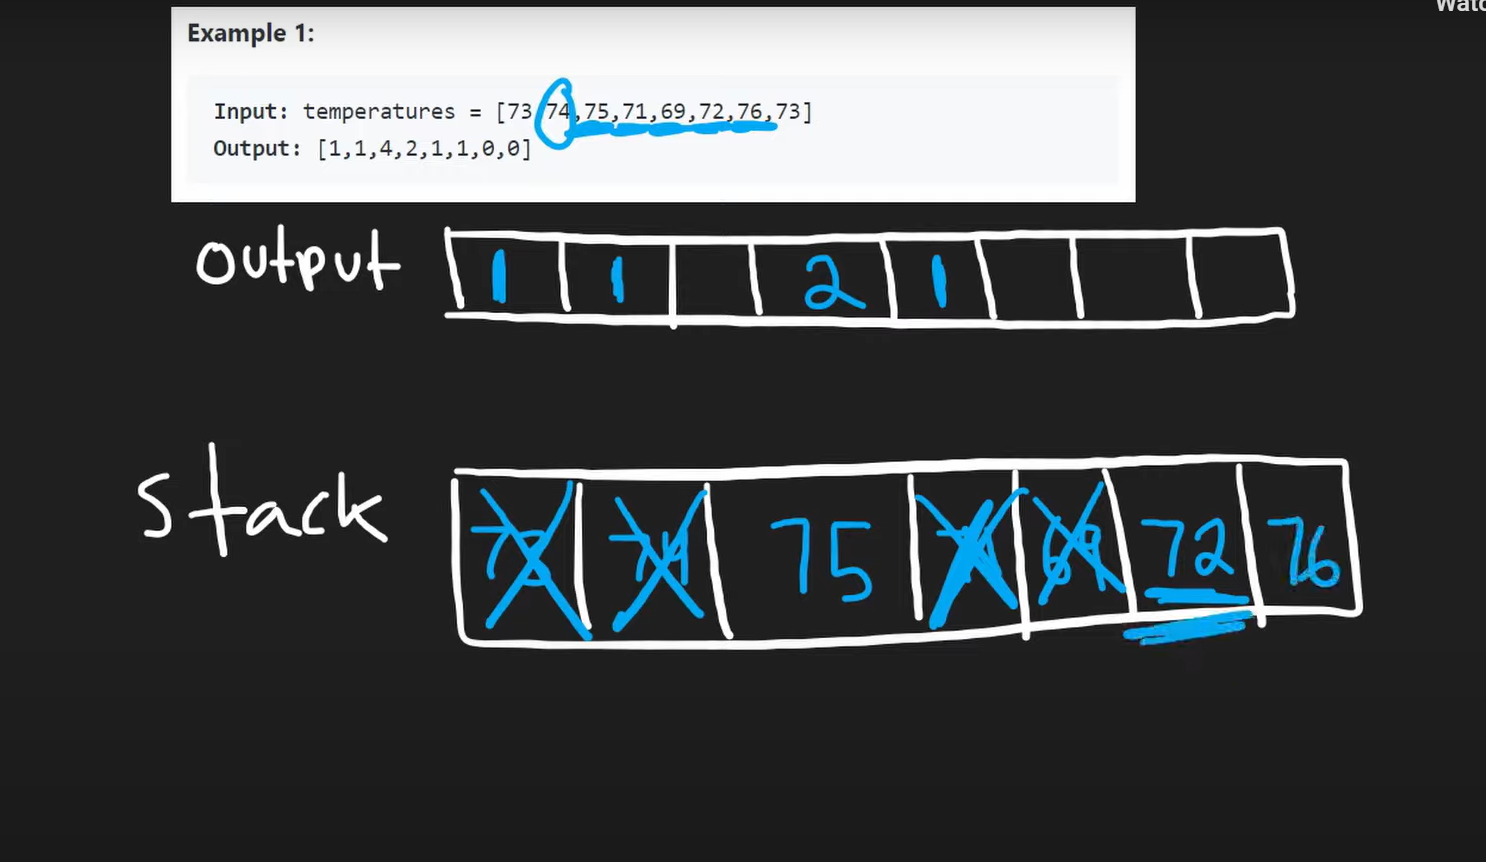 Watc
Example 1:
Input: temperatures = [73,74,75,71,69,72,76,73]
Output: [1,1,4,2,1,1,0,0]
output 1 1 2 1
Stack 73 74 75 71 69 72 76